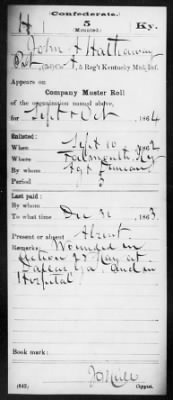 Confederate.
H 5 Ky.
(Mounted)
John Hathaway
Pvt, Co. A, 5 Reg't Kentucky Mtd. Inf.
Appears on
Company Muster Roll
of the organization named above,
for Sept & Oct, 1864
Enlisted:
When Sept 10, 1862
Where Falmouth, Ky
By whom Duncan
Period 3
Last paid:
By whom
To what time Dec 31, 1863.
Present or absent Absent
Remarks: Wounded in
action 28 May at
Dallas, Ga. and in
Hospital
Book mark:
(642) Copyist.